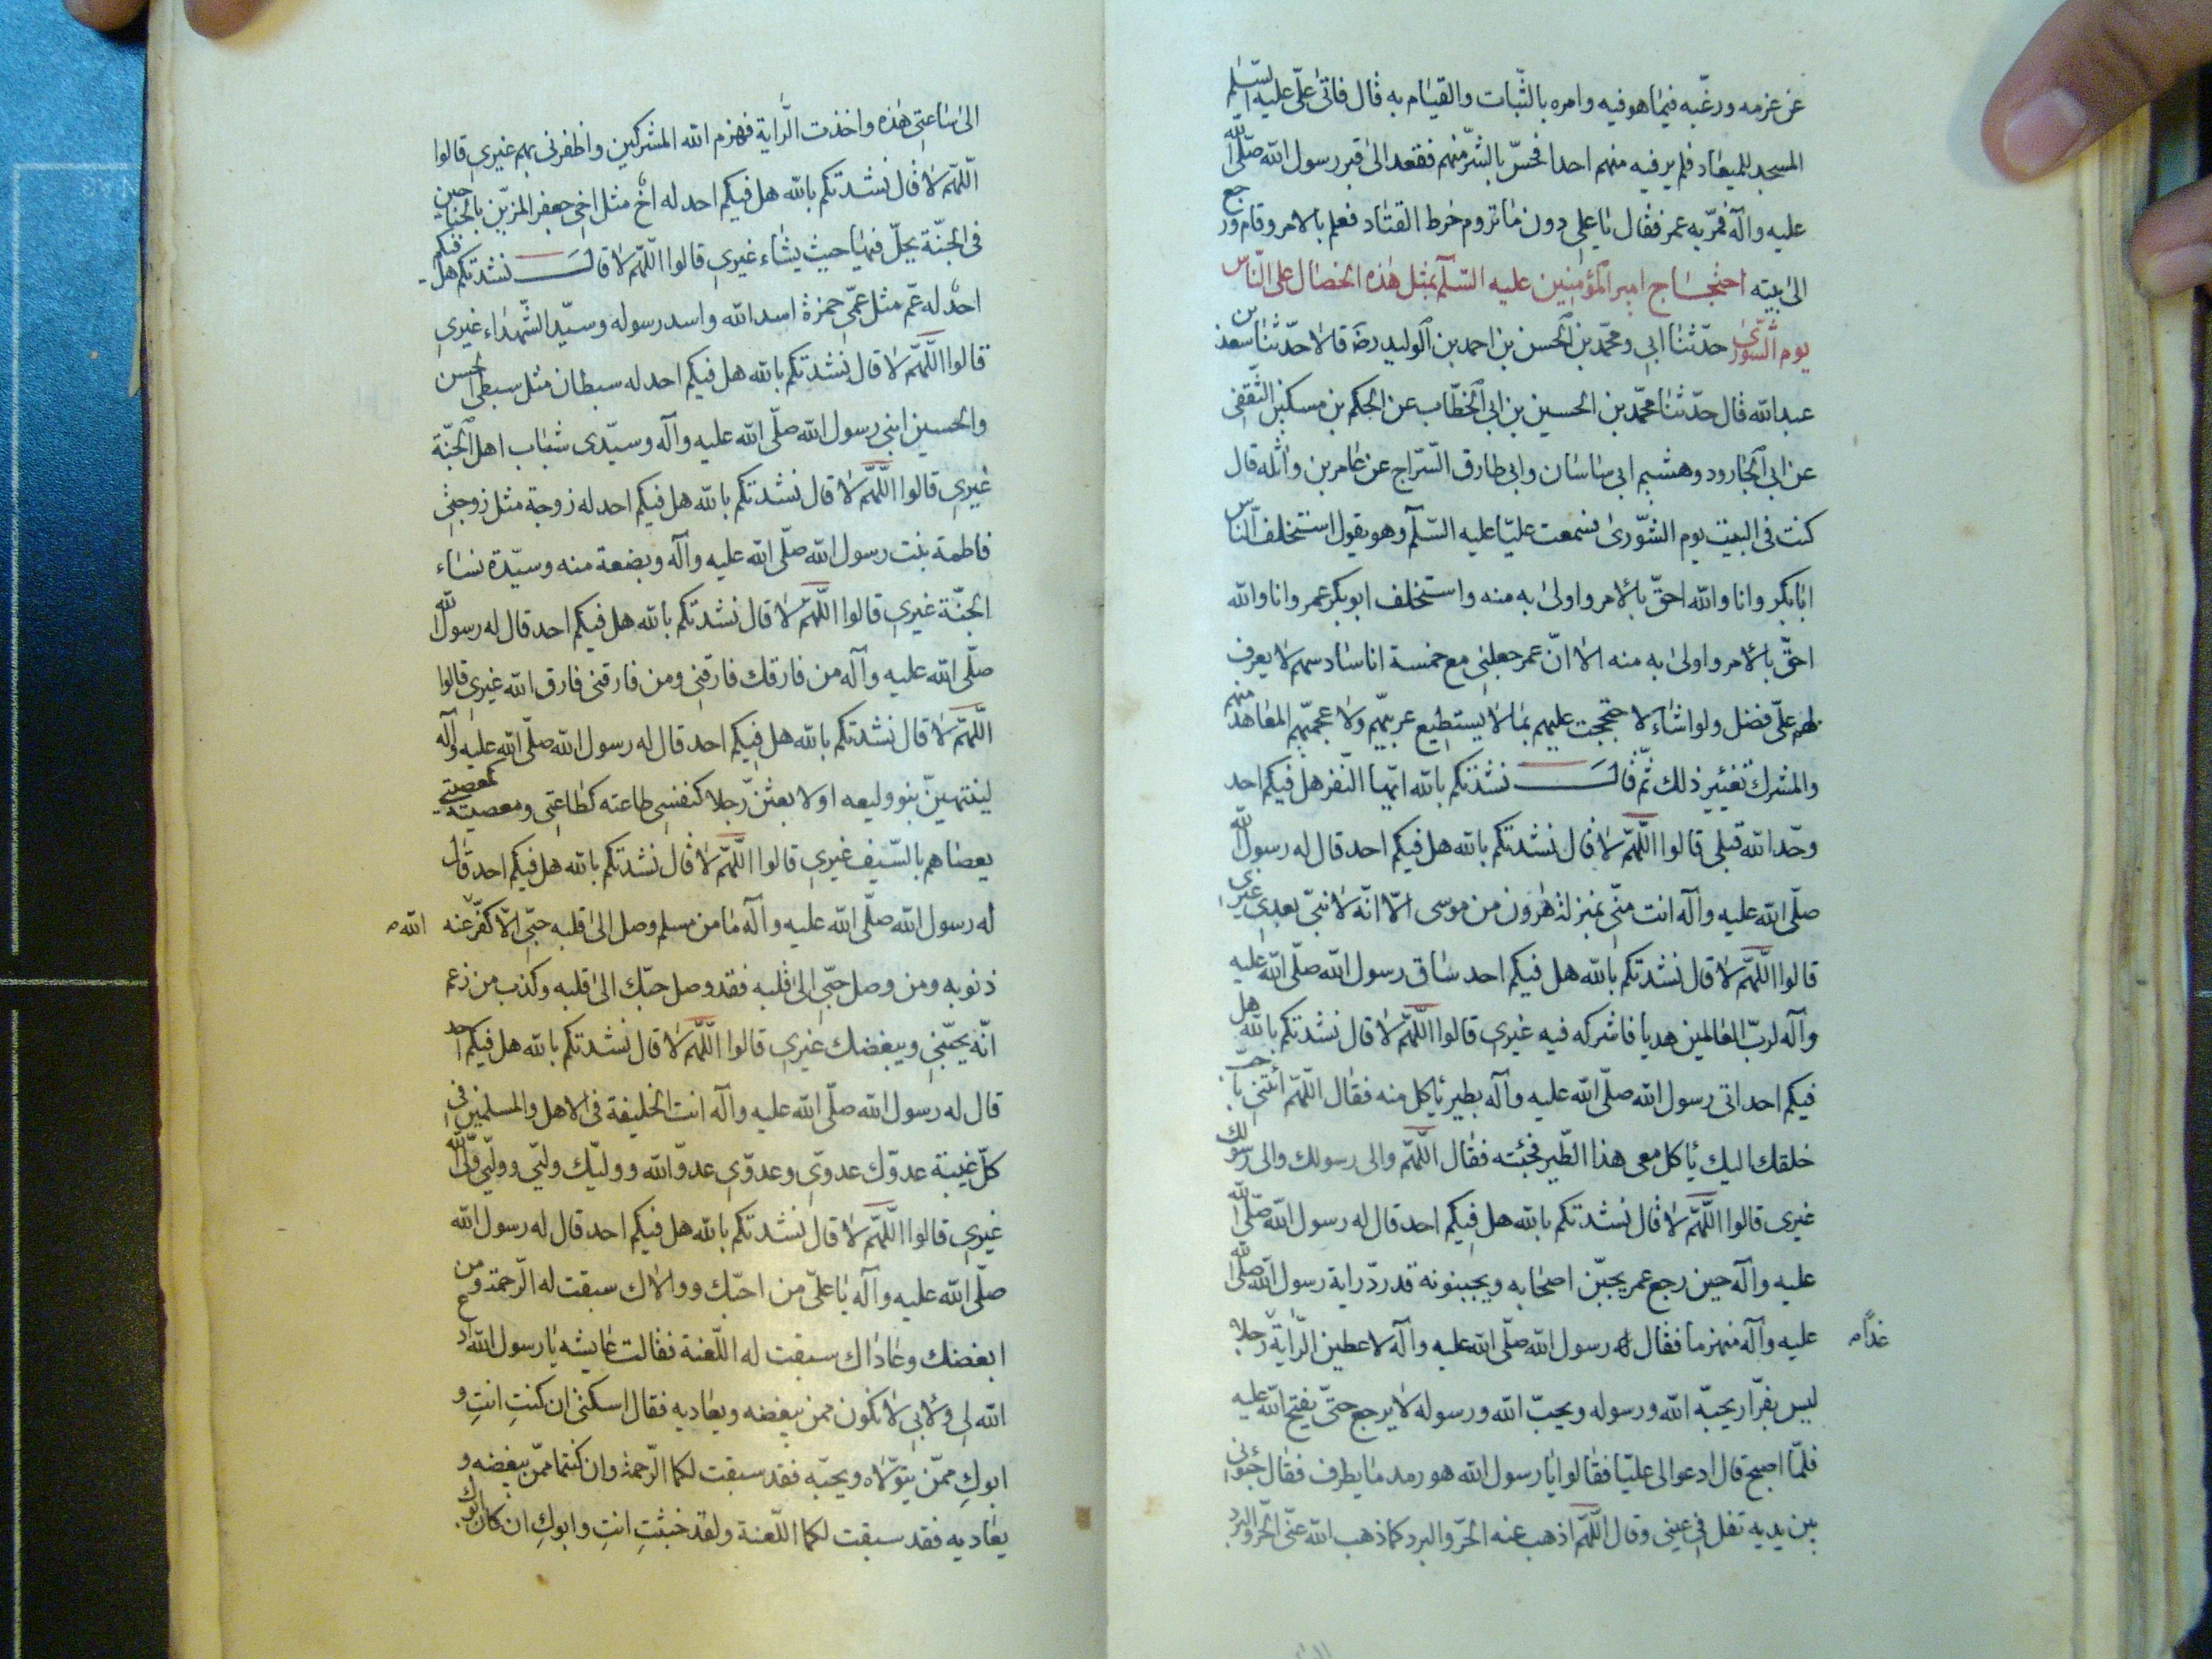 عن عزمه ورغّبه فيما هو فيه وامره بالثّبات والقيام به قال فاتى علىّ عليه السّلم
المسجد للميعاد فلم ير فيه منهم احدا فحسّ بالشّرّ منهم فقعد الى قبر رسول الله صلّى الله
عليه وآله فمرّ به عمر فقال يا على دون ما تروم خرط القتاد فعلم بالامر وقام ورجع
الى بيته احتجاج امير المؤمنين عليه السّلم بمثل هذه الخصال على النّاس
يوم الشّورى حدّثنا ابى ومحمّد بن الحسن بن احمد بن الوليد رضه قالا حدّثنا سعد بن
عبد الله قال حدّثنا محمّد بن الحسين بن ابى الخطّاب عن الحكم بن مسكين الثّقفى
عن ابى الجارود وهشيم ابى ساسان وابى طارق السّراج عن عامر بن واثله قال
كنت فى البيت يوم الشّورى فسمعت عليّا عليه السّلم وهو يقول استخلف النّاس
ابابكر وانا والله احقّ بالامر واولى به منه واستخلف ابوبكر عمر وانا والله
احقّ بالامر واولى به منه الا انّ عمر جعلنى مع خمسة انا سادسهم لا يعرف
لهم علىّ فضل ولو اشاء لاحتججت عليهم بما لا يستطيع عربيّهم ولا عجميّهم المعاهد منهم
والمشرك تغيير ذلك ثمّ قال نشدتكم بالله ايّها النّفر هل فيكم احد
وحّد الله قبلى قالوا اللّهمّ لا قال نشدتكم بالله هل فيكم احد قال له رسول الله
صلّى الله عليه وآله انت منّى بمنزلة هرون من موسى الّا انّه لا نبىّ بعدى غيرى
قالوا اللّهمّ لا قال نشدتكم بالله هل فيكم احد ساق رسول الله صلّى الله عليه
وآله لربّ العالمين هديا فاشركه فيه غيرى قالوا اللّهمّ لا قال نشدتكم بالله هل
فيكم احد اتى رسول الله صلّى الله عليه وآله بطير يأكل منه فقال اللّهمّ ائتنى باحبّ
خلقك اليك يأكل معى هذا الطّير فجئته فقال اللّهمّ والى رسولك والى رسولك
غيرى قالوا اللّهمّ لا قال نشدتكم بالله هل فيكم احد قال له رسول الله صلّى الله
عليه وآله حين رجع عمر يجبّن اصحابه ويجبنونه قد ردّ راية رسول الله صلّى الله
عليه وآله منهزما فقال له رسول الله صلّى الله عليه وآله لاعطين الرّاية رجلا غدا
ليس بفرّار يحبّه الله ورسوله ويحبّ الله ورسوله لا يرجع حتّى يفتح الله عليه
فلمّا اصبح قال ادعوا لى عليّا فقالوا يا رسول الله هو رمد ما يطرف فقال جيؤنى
بين يديه تفل فى عينى وقال اللّهمّ اذهب عنه الحرّ والبرد كما ذهب الله عنّى الحرّ والبرد
الى ساعتى هذه واخذت الرّاية فهزم الله المشركين واظفرنى بهم غيرى قالوا
اللّهمّ لا قال نشدتكم بالله هل فيكم احد له اخ مثل اخى جعفر المزيّن بالجناحين
فى الجنّة يحلّ فيها حيث يشاء غيرى قالوا اللّهمّ لا قال نشدتكم هل فيكم
احد له عمّ مثل عمّى حمزة اسد الله واسد رسوله وسيّد الشّهداء غيرى
قالوا اللّهمّ لا قال نشدتكم بالله هل فيكم احد له سبطان مثل سبطى الحسن
والحسين ابنى رسول الله صلّى الله عليه وآله وسيّدى شباب اهل الجنّة
غيرى قالوا اللّهمّ لا قال نشدتكم بالله هل فيكم احد له زوجة مثل زوجتى
فاطمة بنت رسول الله صلّى الله عليه وآله وبضعة منه وسيّدة نساء
الجنّة غيرى قالوا اللّهمّ لا قال نشدتكم بالله هل فيكم احد قال له رسول الله
صلّى الله عليه وآله من فارقك فارقنى ومن فارقنى فارق الله غيرى قالوا
اللّهمّ لا قال نشدتكم بالله هل فيكم احد قال له رسول الله صلّى الله عليه وآله
لينتهينّ بنو وليعه او لابعثنّ رجلا كنفسى طاعته كطاعتى ومعصيته كمعصيتى
يعضاهم بالسّيف غيرى قالوا اللّهمّ لا قال نشدتكم بالله هل فيكم احد قال
له رسول الله صلّى الله عليه وآله ما من مسلم وصل الى قلبه حبّى الّا كفّر عنه الله
ذنوبه ومن وصل حبّى الى قلبه فقد وصل حبّك الى قلبه وكذب من زعم
انّه يحبّنى ويبغضك غيرى قالوا اللّهمّ لا قال نشدتكم بالله هل فيكم احد
قال له رسول الله صلّى الله عليه وآله انت الخليفة فى الاهل والمسلمين فى
كلّ غيبة عدوّك عدوّى وعدوّى عدوّ الله ووليّك وليّى ووليّى ولىّ الله
غيرى قالوا اللّهمّ لا قال نشدتكم بالله هل فيكم احد قال له رسول الله
صلّى الله عليه وآله يا علىّ من احبّك ووالاك سبقت له الرّحمة ومن
ابغضك وعاداك سبقت له اللّعنة فقالت عايشه يا رسول الله ادع
الله لى ولابى لا نكون ممن يبغضه ويعاديه فقال اسكتى ان كنتِ انتِ و
ابوكِ ممّن يتولّاه ويحبّه فقد سبقت لكما الرّحمة وان كنتما ممّن يبغضه و
يعاديه فقد سبقت لكما اللّعنة ولقد خبثتِ انتِ وابوكِ ان كان ابوك